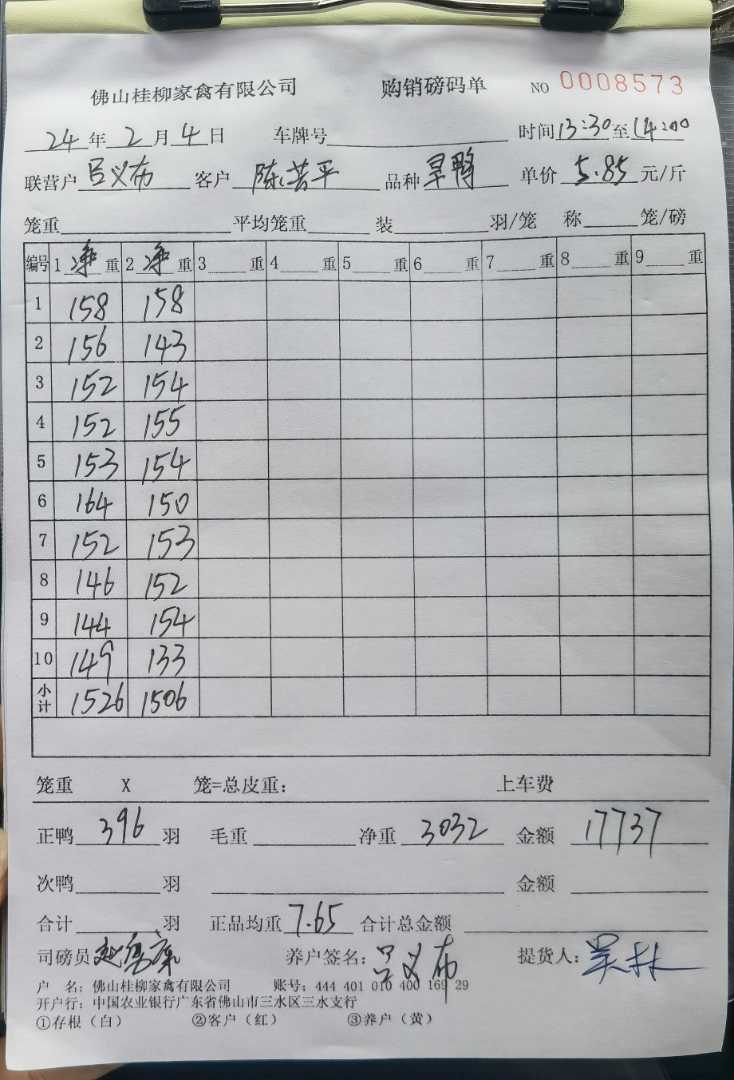 佛山桂柳家禽有限公司 购销磅码单 NO 0008573
24年2月4日 车牌号 时间13:30至14:00
联营户 吕义布 客户 陈芸平 品种 旱鸭 单价 5.85 元/斤
笼重 平均笼重 装 羽/笼 称 笼/磅
编号 1 净 重 2 净 重 3 重 4 重 5 重 6 重 7 重 8 重 9 重
1 158 158
2 156 143
3 152 154
4 152 155
5 153 154
6 164 150
7 152 153
8 146 152
9 144 154
10 149 133
小计 1526 1506
笼重 X 笼=总皮重: 上车费
正鸭 396 羽 毛重 净重 3032 金额 17737
次鸭 羽 金额
合计 羽 正品均重 7.65 合计总金额
司磅员 养户签名: 吕义布 提货人: 吴林
户 名: 佛山桂柳家禽有限公司 账号: 444 401 010 400 169 29
开户行: 中国农业银行广东省佛山市三水区三水支行
①存根（白） ②客户（红） ③养户（黄）